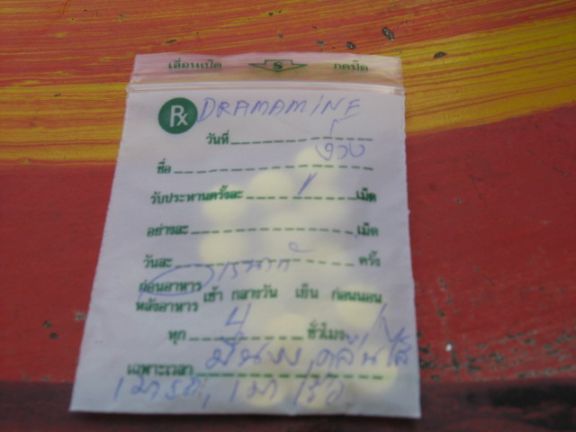 เลื่อนเปิด S กดปิด
Rx DRAMAMINE
วันที่ ง่วง
ชื่อ
รับประทานครั้งละ 1 เม็ด
อย่างละ เม็ด
วันละ ครั้ง
ก่อนอาหาร
หลังอาหาร เช้า กลางวัน เย็น ก่อนนอน
ทุก 4 ชั่วโมง
เฉพาะเวลา มึนงง, คลื่นไส้
เมารถ, เมาเรือ